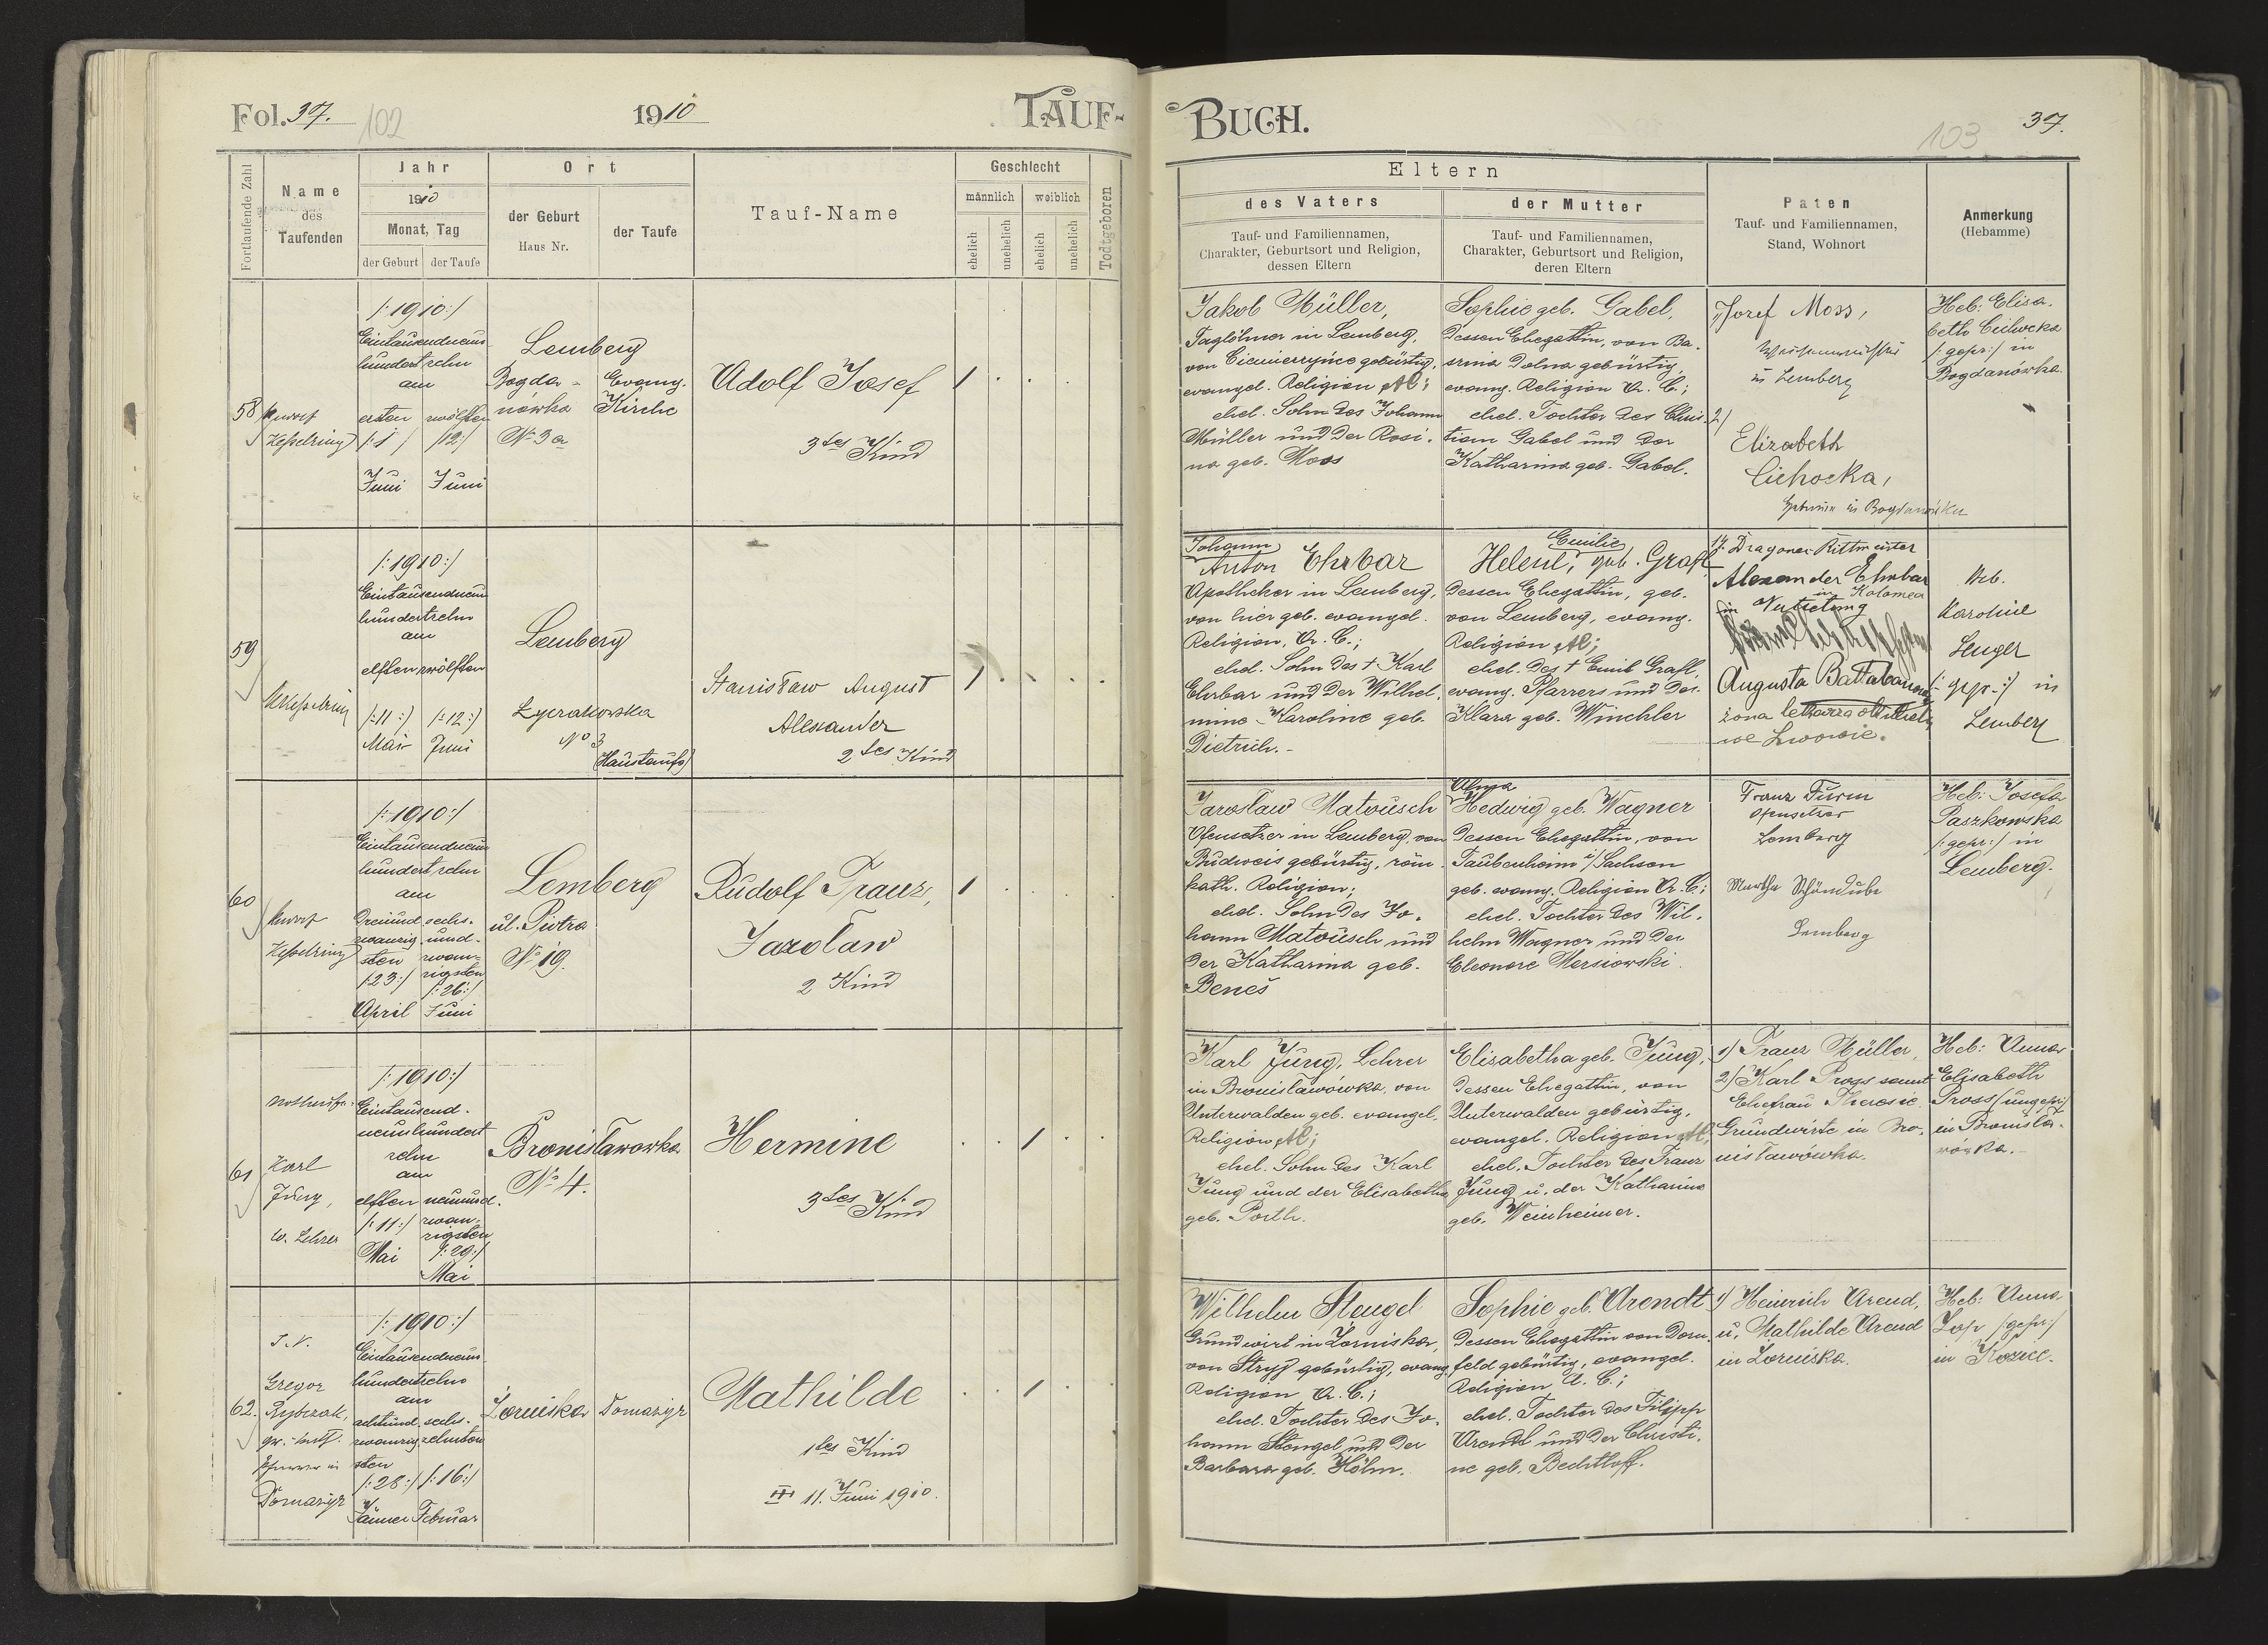 Fol. 37.
102
1910
TAUF-
Fortlaufende Zahl
Name
des
Taufenden
Jahr
1910
Monat, Tag
der Geburt
der Taufe
Ort
der Geburt
Haus Nr.
der Taufe
Tauf-Name
Geschlecht
männlich
weiblich
ehelich
unehelich
ehelich
unehelich
Todtgeboren
58
Kesselring
/:1910:/
Eintausendneun-
hundertzehn
am
ersten zwölften
/:1/ /12:/
Juni Juni
Lemberg
Bogda-
nówka
No 3a
Evang.
Kirche
Adolf Josef
3tes Kind
1
59
Kesselring
/:1910:/
Eintausendneun
hundertzehn
am
elften zwölften
/:11:/ /:12:/
Mai Juni
Lemberg
Łyczakowska
No 3
(Haustaufe)
Stanisław August
Alexander
2tes Kind
1
60
Kesselring
/:1910:/
Eintausendneun
hundertzehn
am
Dreiund sechs-
zwanzig und-
sten zwan-
/:23:/ zigsten
/:26:/
April Juni
Lemberg
ul. Piotra
No 19.
Rudolf Franz,
Jarolaw
2 Kind
1
61
Karl
Jung,
w. Lehrer
/:1910:/
Eintausend-
neunhundert
zehn
am
elften neunund-
/:11:/ zwan-
zigsten
Mai /:29:/
Mai
Bronisławowka
No 4.
Hermine
3tes Kind
1
62.
J. V.
Gregor
Rybczak,
Pfarrer in
Domazyr
/:1910:/
Eintausendneun-
hundertzehn
am
achtund sechs-
zwanzig zehnten
sten
/:28:/ /:16:/
Jänner Februar
Zorniska
Domazyr
Mathilde
1tes Kind
III 11. Juni 1910.
1
BUCH.
103
37.
Eltern
des Vaters
Tauf- und Familiennamen,
Charakter, Geburtsort und Religion,
dessen Eltern
der Mutter
Tauf- und Familiennamen,
Charakter, Geburtsort und Religion,
deren Eltern
Paten
Tauf- und Familiennamen,
Stand, Wohnort
Anmerkung
(Hebamme)
Jakob Müller,
Taglöhner in Lemberg,
von gebürtig,
evangel. Religion AC;
ehel. Sohn des Johann
Müller und der Rosi-
na geb. Moos
Sophie geb. Gabel,
dessen Ehegattin, von Ba-
srina Dolna gebürtig,
evang. Religion A. C.;
ehel. Tochter des Chris-
tian Gabel und der
Katharina geb. Gabel.
Josef Moss,
in Lemberg
2/
Elizabeth
Cichocka,
in Bogdanówka
Heb: Elisa-
beth Cichocka
/:gepr:/ in
Bogdanówka
Johann
Anton Ehrbar
Apotheker in Lemberg,
von hier geb. evangel.
Religion, A. C.;
ehel. Sohn des + Karl
Ehrbar und der Wilhel-
mine Karoline geb.
Dietrich.-
Emilie
Helene, geb. Grafl
dessen Ehegattin, geb.
von Lemberg, evang.
Religion AC;
ehel. des + Emil Grafl,
evang. Pfarrers und der
Klara geb. Winchler
Dragoner Rittmeister
Alexander Ehrbar
in Kolomea
in Vertretung
Augusta
żona lekarza
we Lwowie.
Heb.
Karoline
Senger
/:gepr:/ in
Lemberg
Jaroslaw Matousch
Ofensetzer in Lemberg, von
Budweis gebürtig, röm.
kath. Religion;
ehel. Sohn des Jo-
hann Matousch und
der Katharina geb.
Beneš
Alma
Hedwig geb. Wagner
dessen Ehegattin, von
Taubenheim i/Sachsen
geb. evang. Religion A. C;
ehel. Tochter des Wil-
helm Wagner und der
Eleonore Mersiowski.
Franz Turm
Ofensetzer
Lemberg
Martha
Lemberg
Heb: Josefa
Paszkowska
/:gepr:/ in
Lemberg.
Karl Jung, Lehrer
in Bronisławówka, von
Unterwalden geb. evangel.
Religion AC;
ehel. Sohn des Karl
Jung und der Elisabetha
geb. Porth.
Elisabetha geb. Jung,
dessen Ehegattin, von
Unterwalden gebürtig,
evangel. Religion AC;
ehel. Tochter des Franz
Jung u. der Katharina
geb. Weinheimer.
1/ Franz Müller,
2/ Karl Pross samt
Ehefrau Theresie
Grundwirte in Bro-
nisławowka.
Heb: Anna
Elisabeth
Pross /ungepr:/
in Bronisła-
wówka.-
Wilhelm Stengel
Grundwirt in Zorniska,
von Stryj gebürtig, evang.
Religion A. C.;
ehel. Tochter des Jo-
hann Stengel und der
Barbara geb. Höhn.
Sophie geb. Arendt
dessen Ehegattin von Dorn-
feld gebürtig, evangel.
Religion A. C.;
ehel. Tochter des Filipp
Arendt und der Christi-
ne geb. Bechtloff.
1/ Heinrich Arend,
u. Mathilde Arend
in Zorniska.
Heb: Anna
Zap /gepr:/
in Kozice.